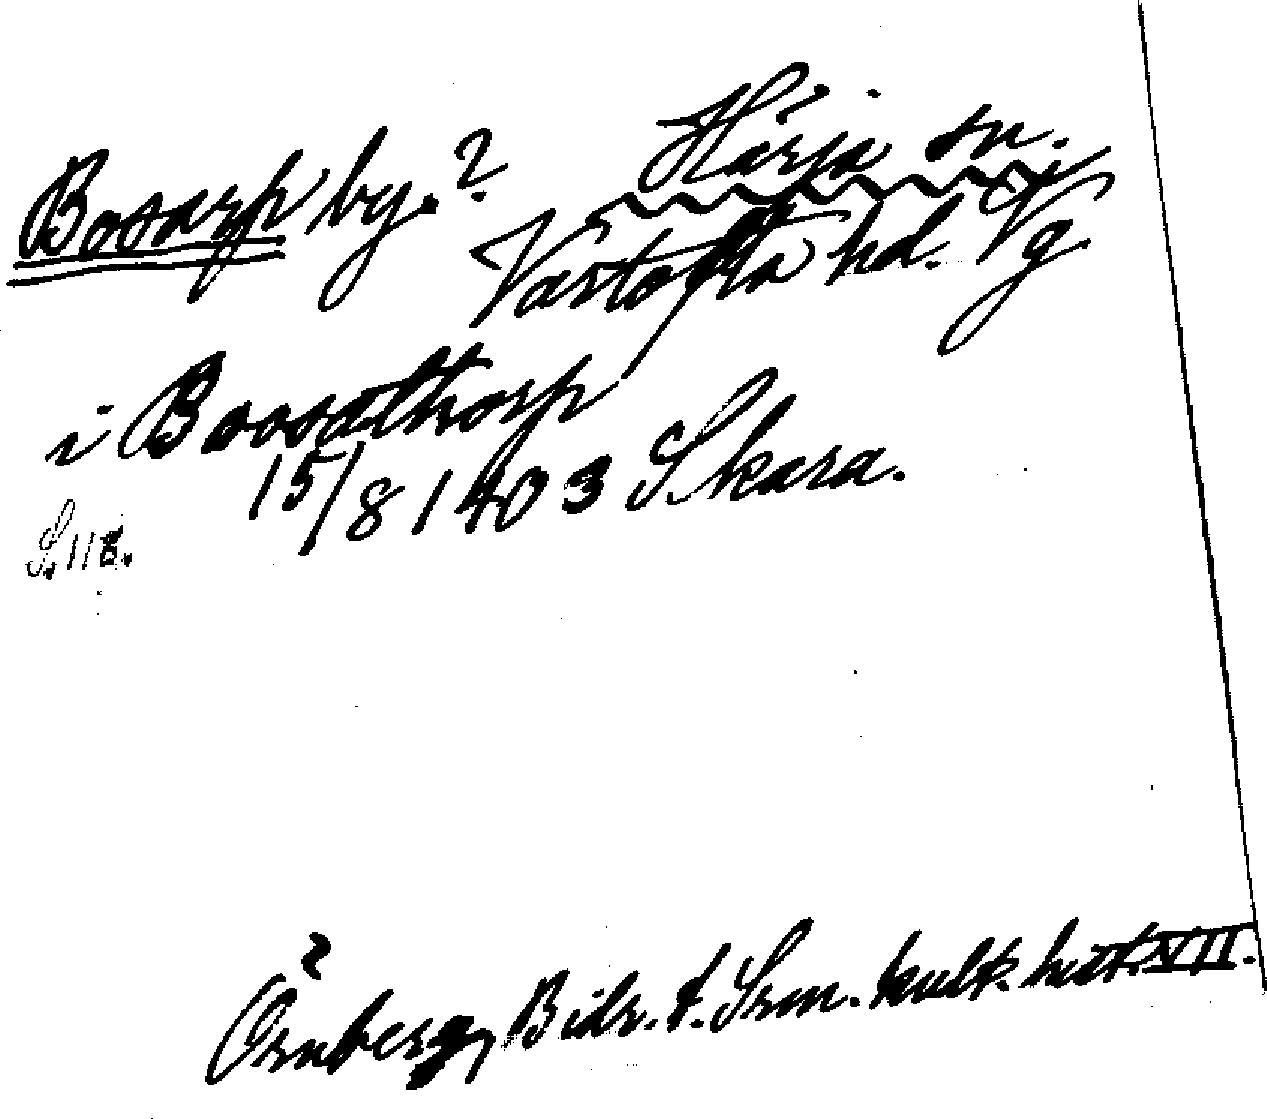 Bosarp by.? Härja sn.
Vartofta hd. Vg
i Boosathorp
15/8 1403 Skara.
S. 118.
Örnberg, Bidr. t. Srm. kult. hist. VII.